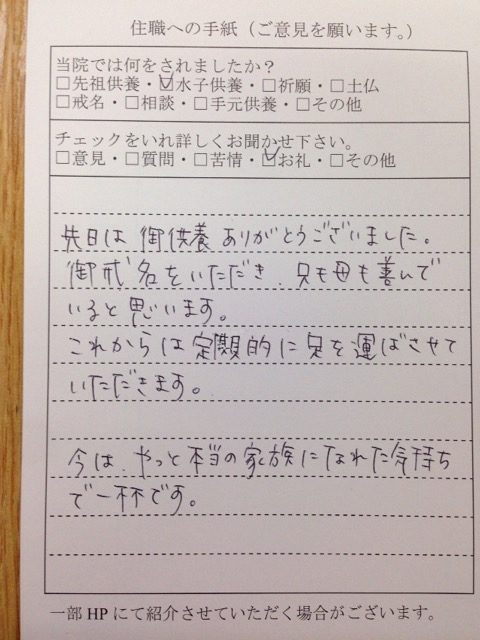 住職への手紙（ご意見を願います。）
当院では何をされましたか？
□先祖供養・☑水子供養・□祈願・□土仏
□戒名・□相談・□手元供養・□その他
チェックをいれ詳しくお聞かせ下さい。
□意見・□質問・□苦情・☑お礼・□その他
先日は 御供養 ありがとうございました。
御戒名をいただき、兄も母も喜んで
いると思います。
これからは定期的に足を運ばさせて
いただきます。
今は、やっと本当の家族になれた気持ち
で一杯です。
一部 HP にて紹介させていただく場合がございます。